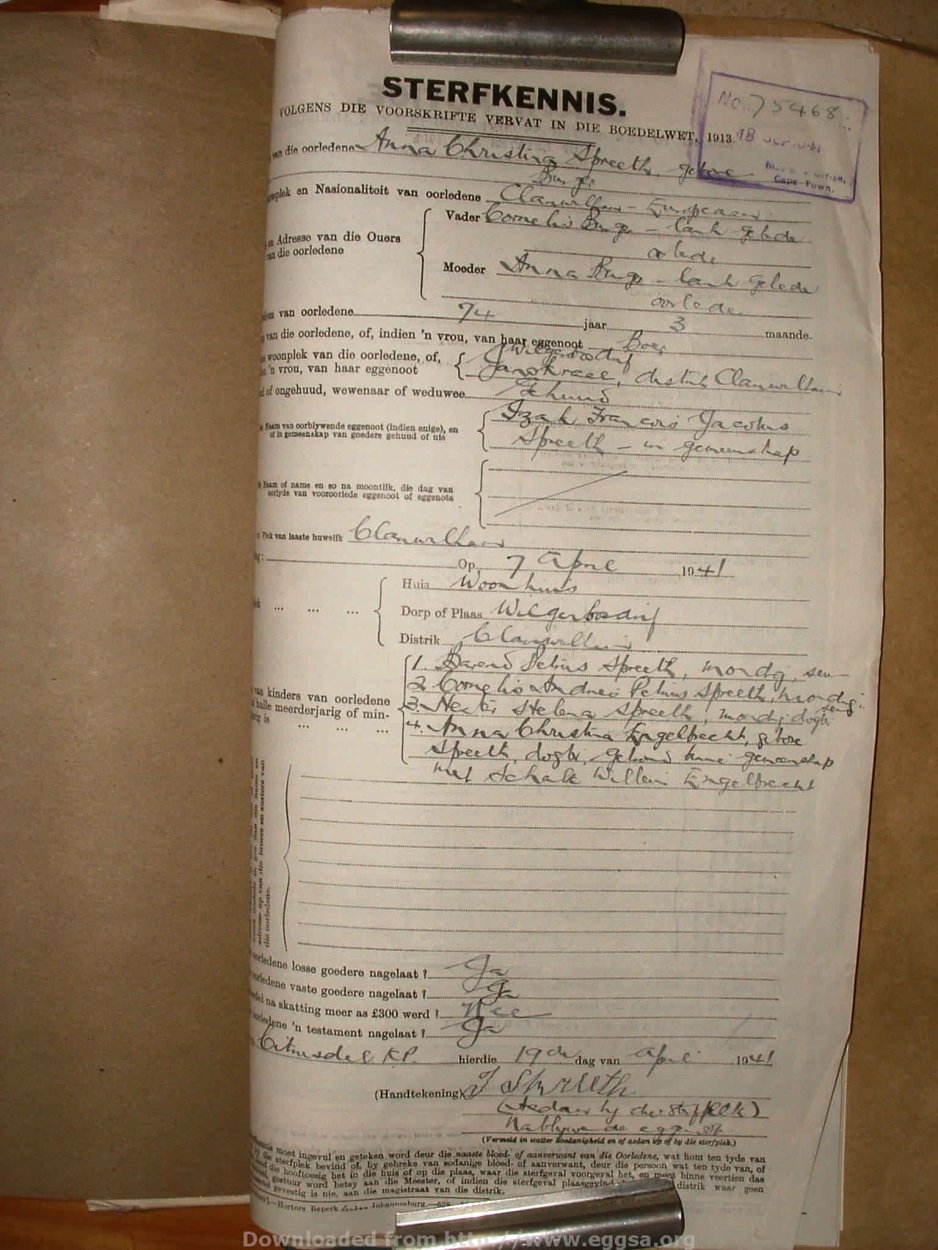 STERFKENNIS.
VOLGENS DIE VOORSKRIFTE VERVAT IN DIE BOEDELWET, 1913.
No. 75468
Cape Town.
van die oorledene Anna Christina Spreeth, gebore
Burger
en Nasionaliteit van oorledene Clanwilliam - Europeaan
Vader Cornelis Burger - lank gelede
oorlede
Adresse van die Ouers
van die oorledene
Moeder Anna Burger - lank gelede
oorlede
van oorledene 74 jaar 3 maande.
van die oorledene, of, indien 'n vrou, van haar eggenoot Boer
woonplek van die oorledene, of,
'n vrou, van haar eggenoot
Wilgerbosdrif
Janskraal, distrik Clanwilliam
of ongehuud, wewenaar of weduwee Gehuud
Naam van oorblywende eggenoot (indien enige), en
of in gemeenskap van goedere gehuud of nie
Izak Francois Jacobus
Spreeth - in gemeenskap
Naam of name en so na moontlik, die dag van
oorlyde van vooroorlede eggenoot of eggenote
Plek van laaste huwelik Clanwilliam
Op 7 April 1941
Huis Woonhuis
Dorp of Plaas Wilgerbosdrif
Distrik Clanwilliam
1. Barend Petrus Spreeth, mondig, seun
2. Cornelis Andries Petrus Spreeth, mondig
seun
van kinders van oorledene
hulle meerderjarig of min-
is
3. Hester Helena Spreeth, mondig dogter
4. Anna Christina Engelbrecht, gebore
Spreeth, dogter, gehuud binne gemeenskap
met Schalk Willem Engelbrecht
die oorledene.
losse goedere nagelaat? Ja
vaste goedere nagelaat? Ja
na skatting meer as £300 werd? Nee
'n testament nagelaat? Ja
Citrusdal K.P. hierdie 19de dag van April 1941
(Handtekening) J Spreeth
Nablywende eggenoot
(Vermeld in watter hoedanigheid en of aedan op of by die sterfplek.)
moet ingevul en geteken word deur die naaste bloed- of aanverwant van die Oorledene, wat hom ten tyde van
die sterfplek bevind of, by gebreke van sodanige bloed- of aanverwant, deur die persoon wat ten tyde van, of
die hooftoesig het in die huis of op die plaas, waar die sterfgeval voorgeval het, en moet binne veertien dae
word betsy aan die Meester, of indien die sterfgeval plaasgevind distrik waar geen
gevestig is nie, aan die magistraat van die distrik.
Hortors Beperk Johannesburg
Downloaded from http://www.eggsa.org